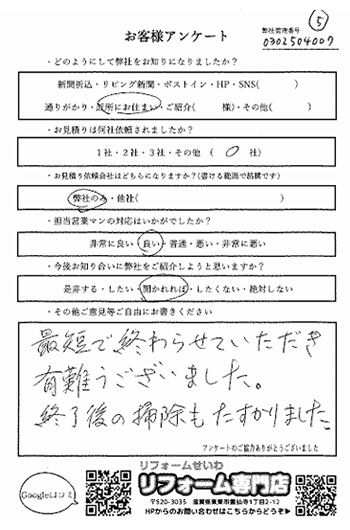 ⑤
お客様アンケート
弊社管理番号
0302504007
・どのようにして弊社をお知りになりましたか？
新聞折込・リビング新聞・ポストイン・HP・SNS(　　　)
通りがかり・近所にお住まい・ご紹介(　　様)・その他(　　　)
・お見積りは何社依頼されましたか？
1社・2社・3社・その他 (　0　社)
・お見積り依頼会社はどちらになりますか？(書ける範囲で結構です)
弊社のみ・他社(　　　)
・担当営業マンの対応はいかがでしたか？
非常に良い・良い・普通・悪い・非常に悪い
・今後お知り合いに弊社をご紹介しようと思いますか？
是非する・したい・聞かれれば・したくない・絶対しない
・その他ご意見等ご自由にお書きください
最短で終わらせていただき
有難うございました。
終了後の掃除もたすかりました
アンケートのご協力ありがとうございました
Google口コミ
リフォームせいわ
リフォーム専門店
〒520-3035 滋賀県栗東市霊仙寺1丁目2-12
HPからのお問い合わせはこちらからどうぞ▶